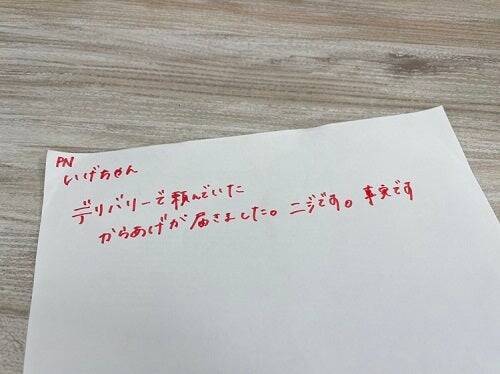 PN
いげちゃん
デリバリーで頼んでいた
からあげが届きました。ニジです。事実です